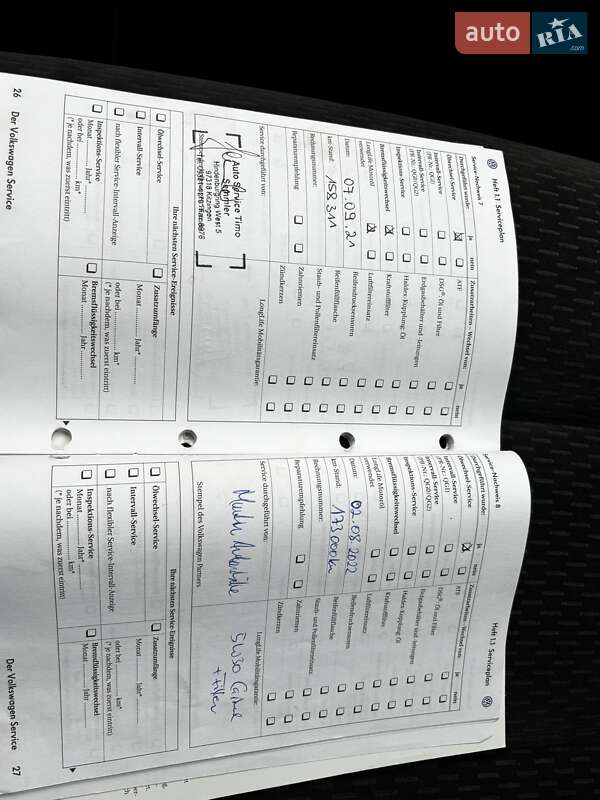 auto
RIA
.com
Heft 1.1 Serviceplan
Service-Nachweis 7
Durchgeführt wurde:
ja
nein
Zusatzarbeiten – Wechsel von:
ja
nein
Ölwechsel-Service
ATF
Intervall-Service
(PR-Nr.: QG1)
DSG®: Öl und Filter
Intervall-Service
(PR-Nr.: QG0/QG2)
Erdgasbehälter und -leitungen
Inspektions-Service
Haldex Kupplung: Öl
Bremsflüssigkeitswechsel
Kraftstofffilter
LongLife Motoröl
verwendet
Luftfiltereinsatz
Datum: 07.09.21
Reifendrucksensoren
km-Stand: 158311
Reifenfüllflasche
Rechnungsnummer:
Staub- und Pollenfiltereinsatz
Reparaturempfehlung
Zahnriemen
Zündkerzen
Service durchgeführt von:
LongLife Mobilitätsgarantie:
Auto Service Timo
Hindenburgring West 5
97318 Kitzingen
Ihre nächsten Service-Ereignisse
Ölwechsel-Service
Zusatzumfänge
Intervall-Service
Monat Jahr*
nach flexibler Service-Intervall-Anzeige
oder bei km*
(* je nachdem, was zuerst eintritt)
Inspektions-Service
Monat Jahr*
oder bei km*
(* je nachdem, was zuerst eintritt)
Bremsflüssigkeitswechsel
Monat Jahr
26
Der Volkswagen Service
Heft 1.1 Serviceplan
Service-Nachweis 8
Durchgeführt wurde:
ja
nein
Zusatzarbeiten – Wechsel von:
ja
nein
Ölwechsel-Service
ATF
Intervall-Service
(PR-Nr.: QG1)
DSG®: Öl und Filter
Intervall-Service
(PR-Nr.: QG0/QG2)
Erdgasbehälter und -leitungen
Inspektions-Service
Haldex Kupplung: Öl
Bremsflüssigkeitswechsel
Kraftstofffilter
LongLife Motoröl
verwendet
Luftfiltereinsatz
Datum: 02.08.2022
Reifendrucksensoren
km-Stand: 173000km
Reifenfüllflasche
Rechnungsnummer:
Staub- und Pollenfiltereinsatz
Reparaturempfehlung
Zahnriemen
Zündkerzen
Service durchgeführt von:
LongLife Mobilitätsgarantie:
5W30
+ Filter
Stempel des Volkswagen Partners
Ihre nächsten Service-Ereignisse
Ölwechsel-Service
Zusatzumfänge
Intervall-Service
Monat Jahr*
nach flexibler Service-Intervall-Anzeige
oder bei km*
(* je nachdem, was zuerst eintritt)
Inspektions-Service
Monat Jahr*
oder bei km*
(* je nachdem, was zuerst eintritt)
Bremsflüssigkeitswechsel
Monat Jahr
Der Volkswagen Service
27